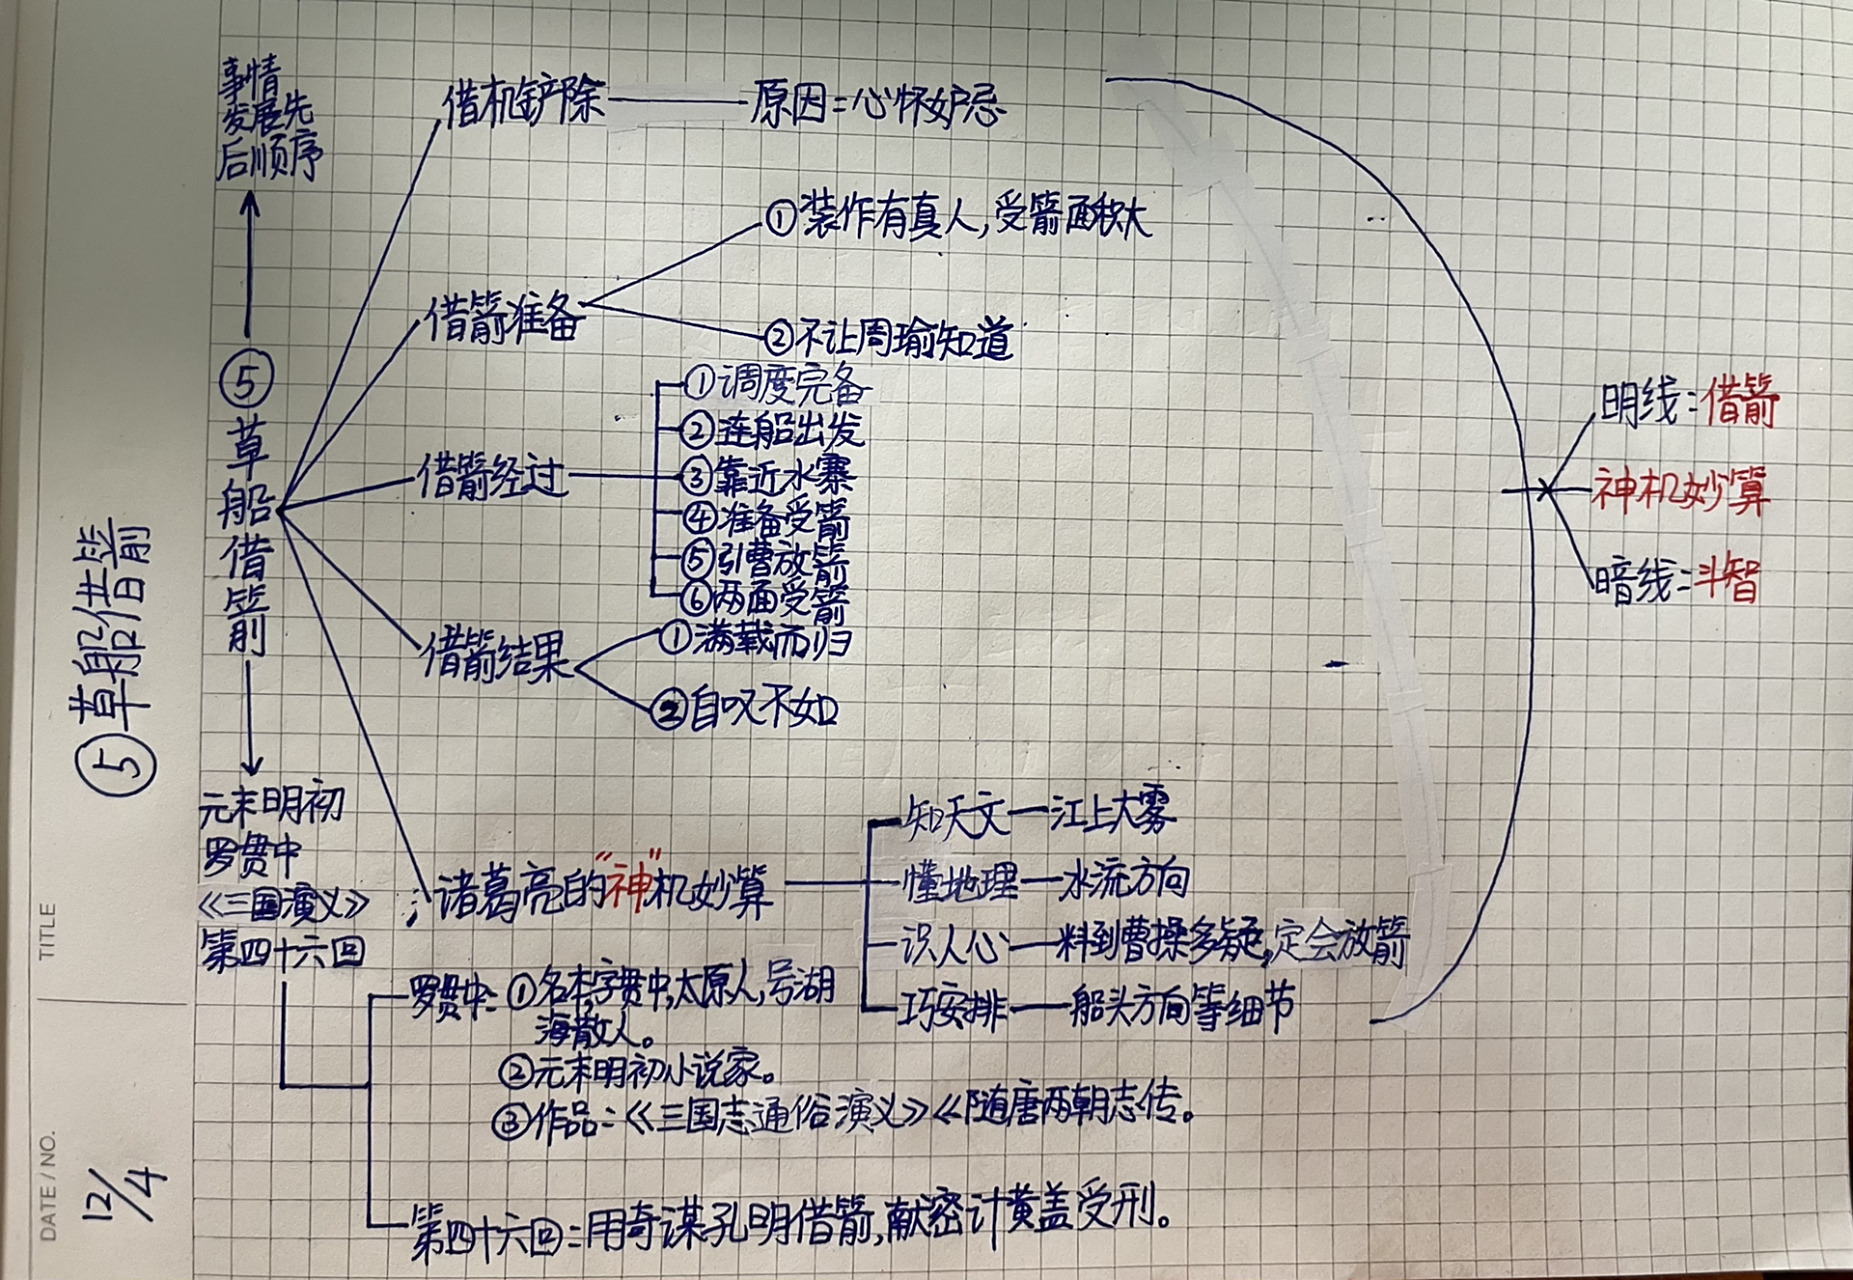 TITLE
DATE / NO.
⑤草船借箭
12/4
事情
发展先
后顺序
⑤草船借箭
元末明初
罗贯中
《三国演义》
第四十六回
借机铲除
原因：心怀妒忌
借箭准备
①装作有真人，受箭面积大
②不让周瑜知道
借箭经过
①调度完备
②连船出发
③靠近水寨
④准备受箭
⑤引曹放箭
⑥两面受箭
借箭结果
①满载而归
②自叹不如
诸葛亮的“神”机妙算
知天文—江上大雾
懂地理—水流方向
识人心—料到曹操多疑，定会放箭
巧安排—船头方向等细节
明线：借箭
神机妙算
暗线：斗智
罗贯中：①名本，字贯中，太原人，号湖
海散人。
②元末明初小说家。
③作品：《三国志通俗演义》《隋唐两朝志传。
第四十六回：用奇谋孔明借箭，献密计黄盖受刑。